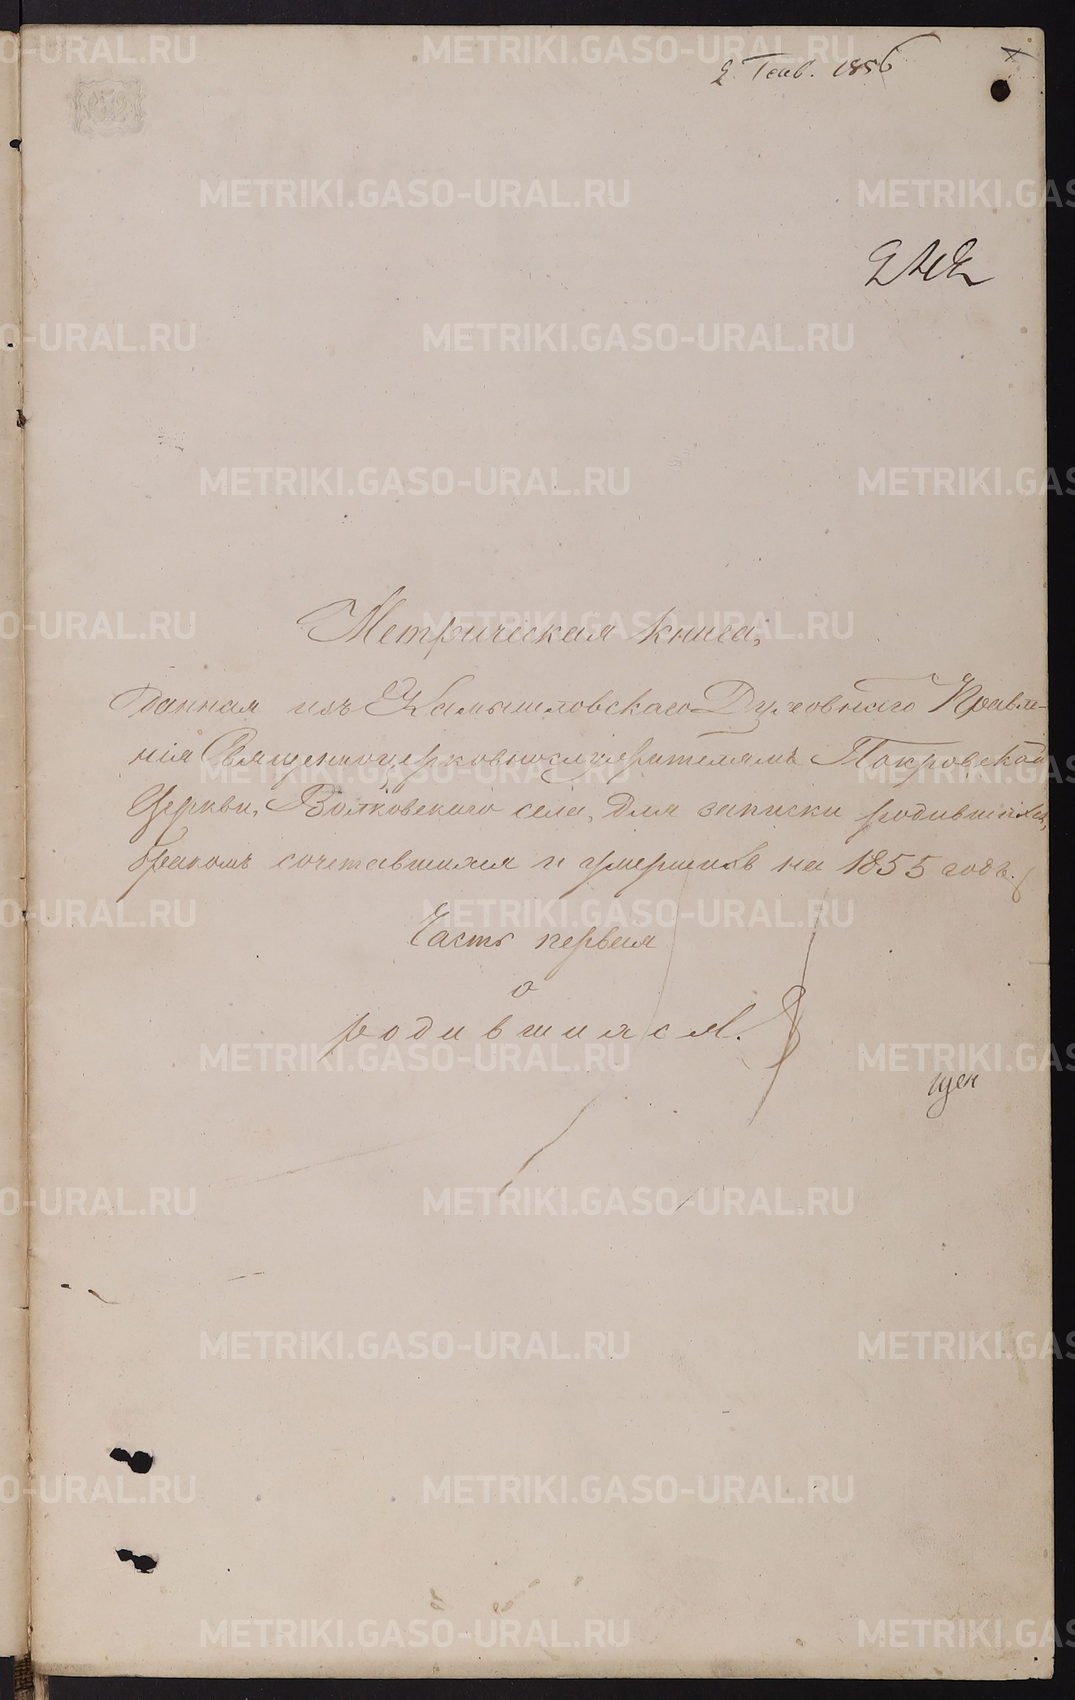 2 Генв. 1856
Метрическая книга,
данная изъ Камышловскаго Духовнаго Правле-
нія Священноцерковнослужителямъ Покровской
Церкви, Волковскаго села, для записки родившихся,
бракомъ сочетавшихся и умершихъ на 1855 годъ.
Часть первая
о
родившихся.
METRIKI.GASO-URAL.RU